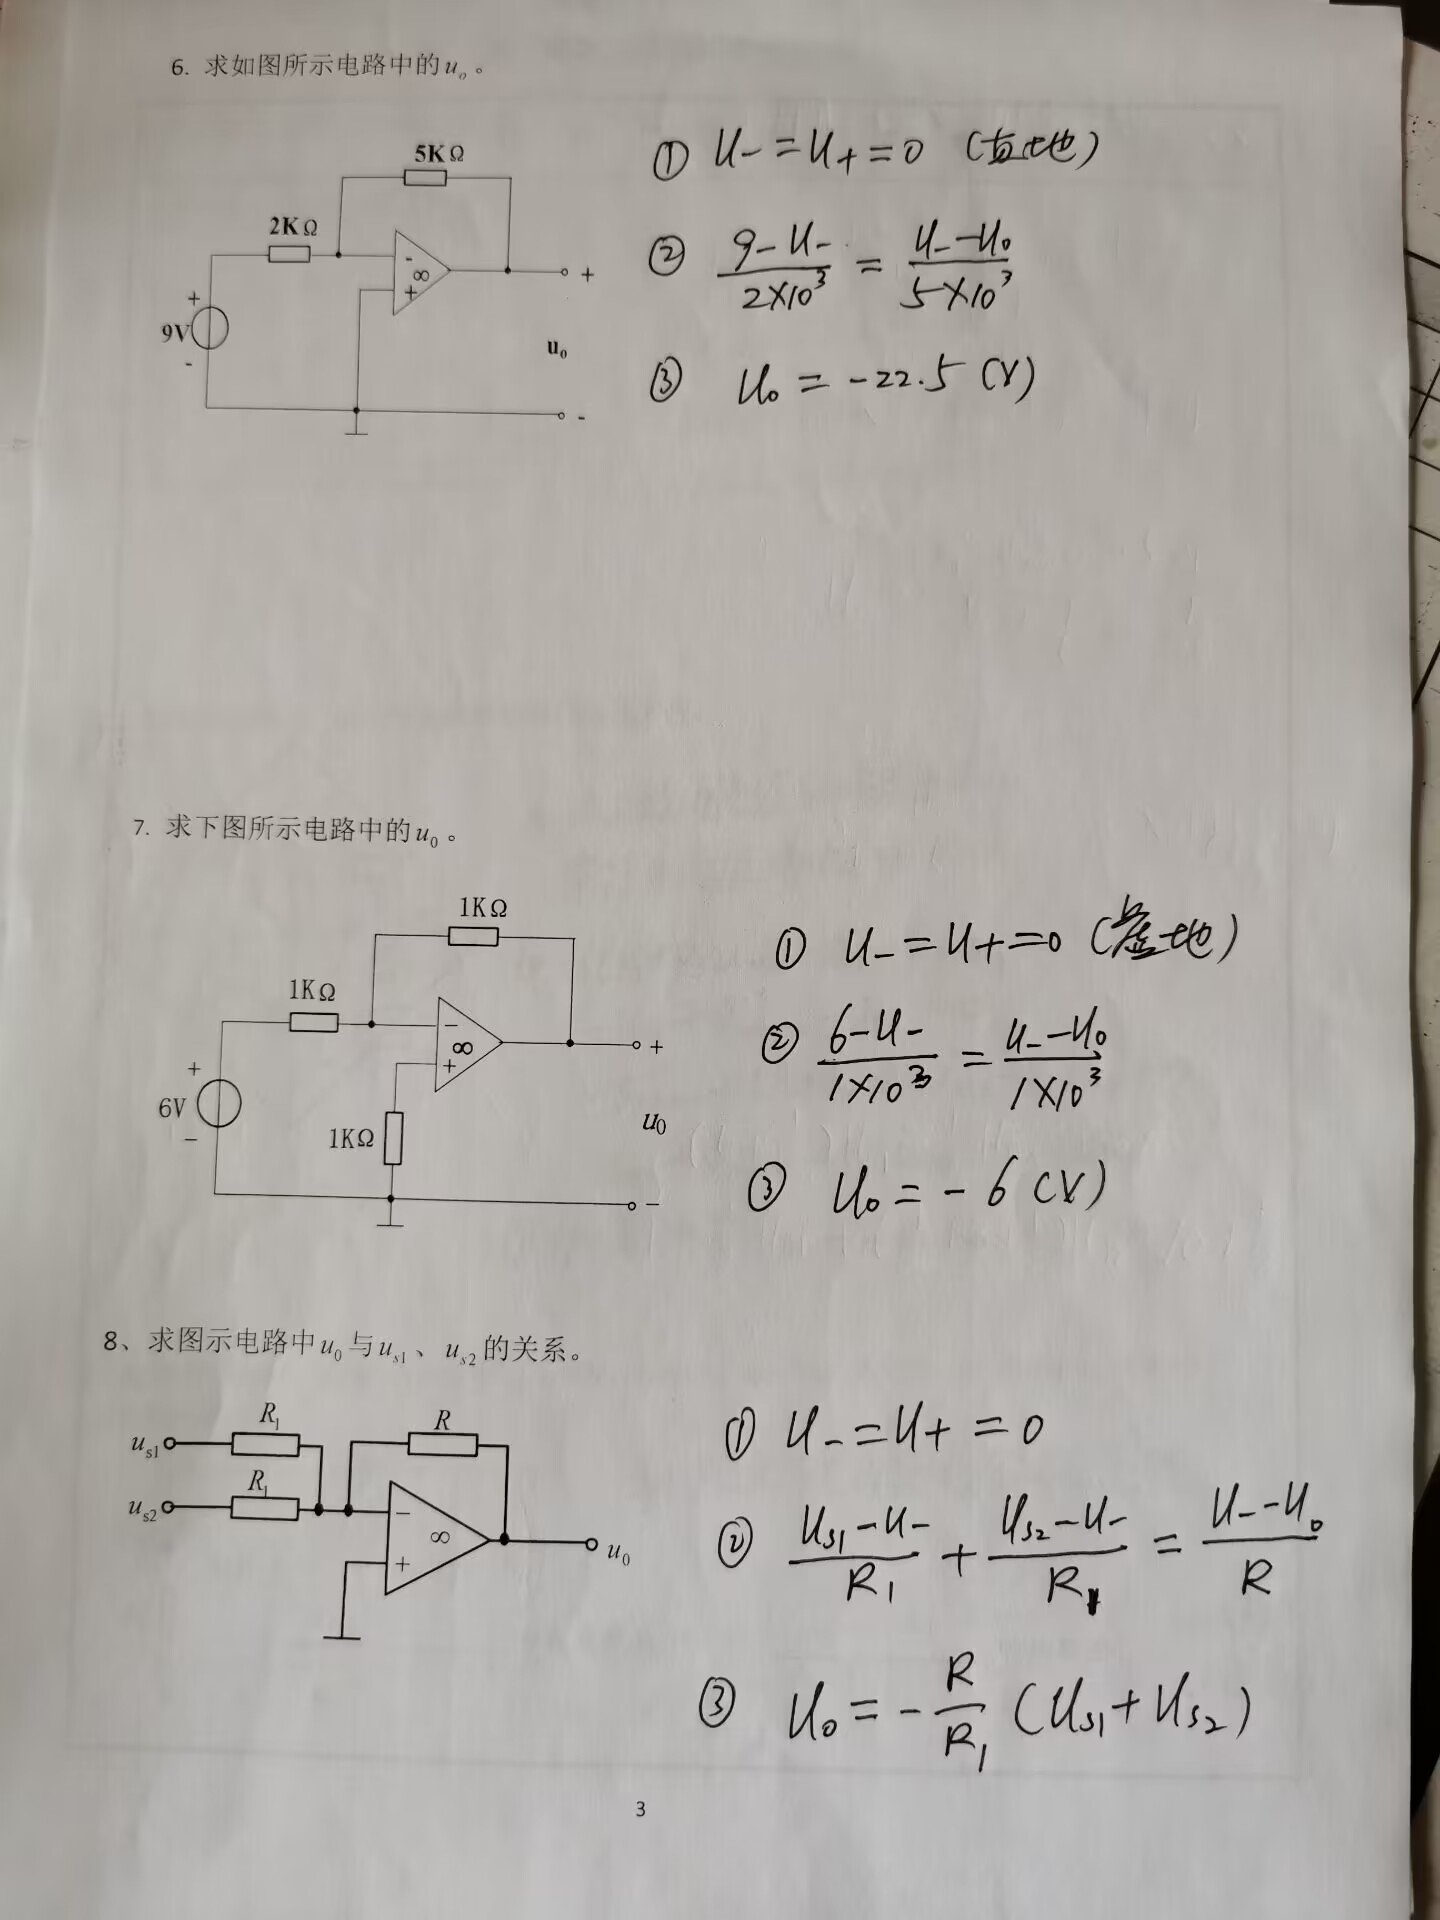 6. 求如图所示电路中的uₒ。
5KΩ
2KΩ
-
∞
+
+
9V
-
+
uₒ
-
① U₋=U₊=0 (直地)
② (9-U₋)/(2×10³) = (U₋-U₀)/(5×10³)
③ U₀ = -22.5 (V)
7. 求下图所示电路中的u₀。
1KΩ
1KΩ
−
∞
+
+
6V
−
1KΩ
+
u₀
−
① U₋=U₊=0 (虚地)
② (6-U₋)/(1×10³) = (U₋-U₀)/(1×10³)
③ U₀ = -6 (V)
8、求图示电路中u₀与uₛ₁、uₛ₂的关系。
R₁
R
uₛ₁
R₁
uₛ₂
−
∞
+
u₀
① U₋=U₊=0
② (Uₛ₁-U₋)/R₁ + (Uₛ₂-U₋)/R₁ = (U₋-U₀)/R
③ U₀ = -R/R₁ (Uₛ₁+Uₛ₂)
3